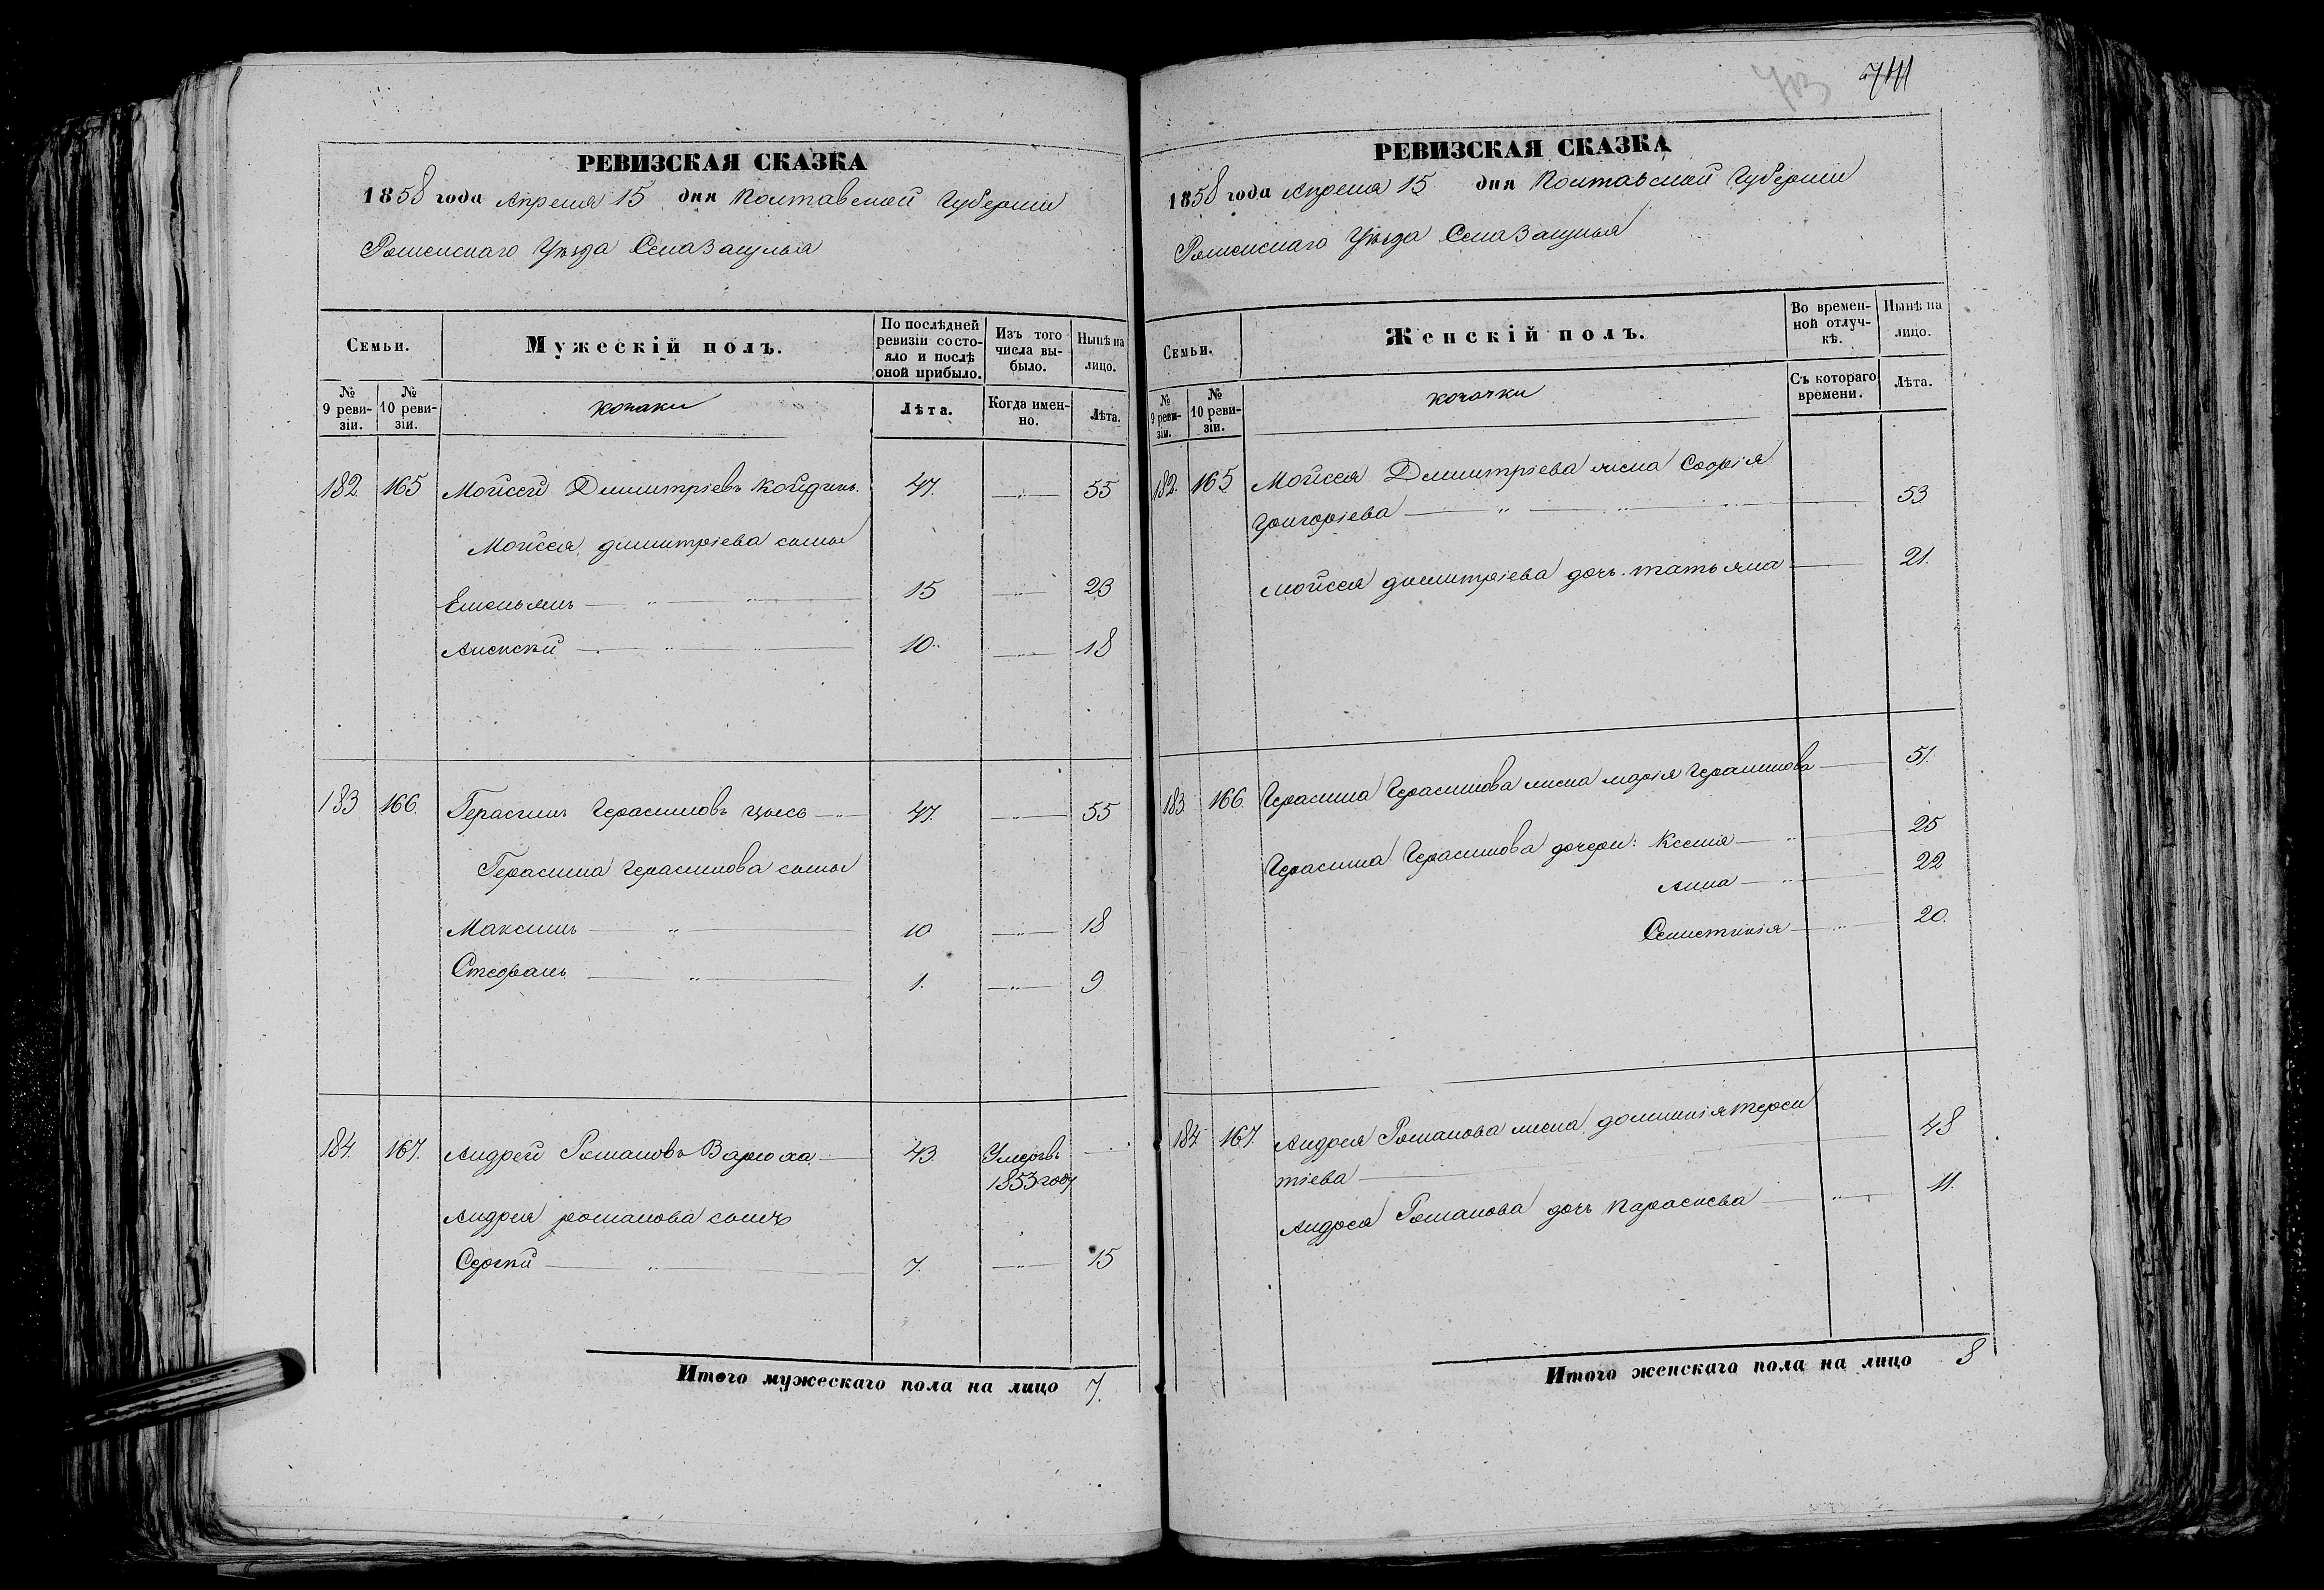 РЕВИЗСКАЯ СКАЗКА
1858 года Апреля 15 дня Полтавской Губерніи
Роменскаго Уѣзда Села Засулья
Семьи.
Мужескій полъ.
По послѣдней ревизіи состояло и послѣ оной прибыло.
Изъ того числа выбыло.
Нынѣ на лицо.
№ 9 ревизіи.
№ 10 ревизіи.
козаки
Лѣта.
Когда именно.
Лѣта.
182 165 Мойсей Димитріевъ 47. 55
Мойсея димитріева сыны
Емельянъ 15 23
Алексѣй 10 18
183 166. Герасимъ Герасимовъ 47. 55
Герасима Герасимова сыны
Максимъ 10 18
Стефанъ 1. 9
184. 167. Андрей Романовъ Варюха 43 Умеръ въ 1853 году
Андрея романова сынъ
Сергѣй 7. 15
Итого мужескаго пола на лицо 7.
741
РЕВИЗСКАЯ СКАЗКА
1858 года Апреля 15 дня Полтавской Губерніи
Роменскаго Уѣзда Села Засулья
Семьи.
Женскій полъ.
Во временной отлучкѣ.
Нынѣ на лицо.
№ 9 ревизіи.
№ 10 ревизіи.
козачки
Съ котораго времени.
Лѣта.
182. 165 Мойсея Димитріева жена Софія
Григоріева 53
мойсея димитріева дочь татьяна 21.
183 166 Герасима Герасимова жена марія Герасимова 51.
Герасима Герасимова дочери: Ксенія 25
Анна 22
20.
184 167. Андрея Романова жена домникія терен
тіева 48
Андрея Романова дочь параскева 11.
Итого женскаго пола на лицо 8